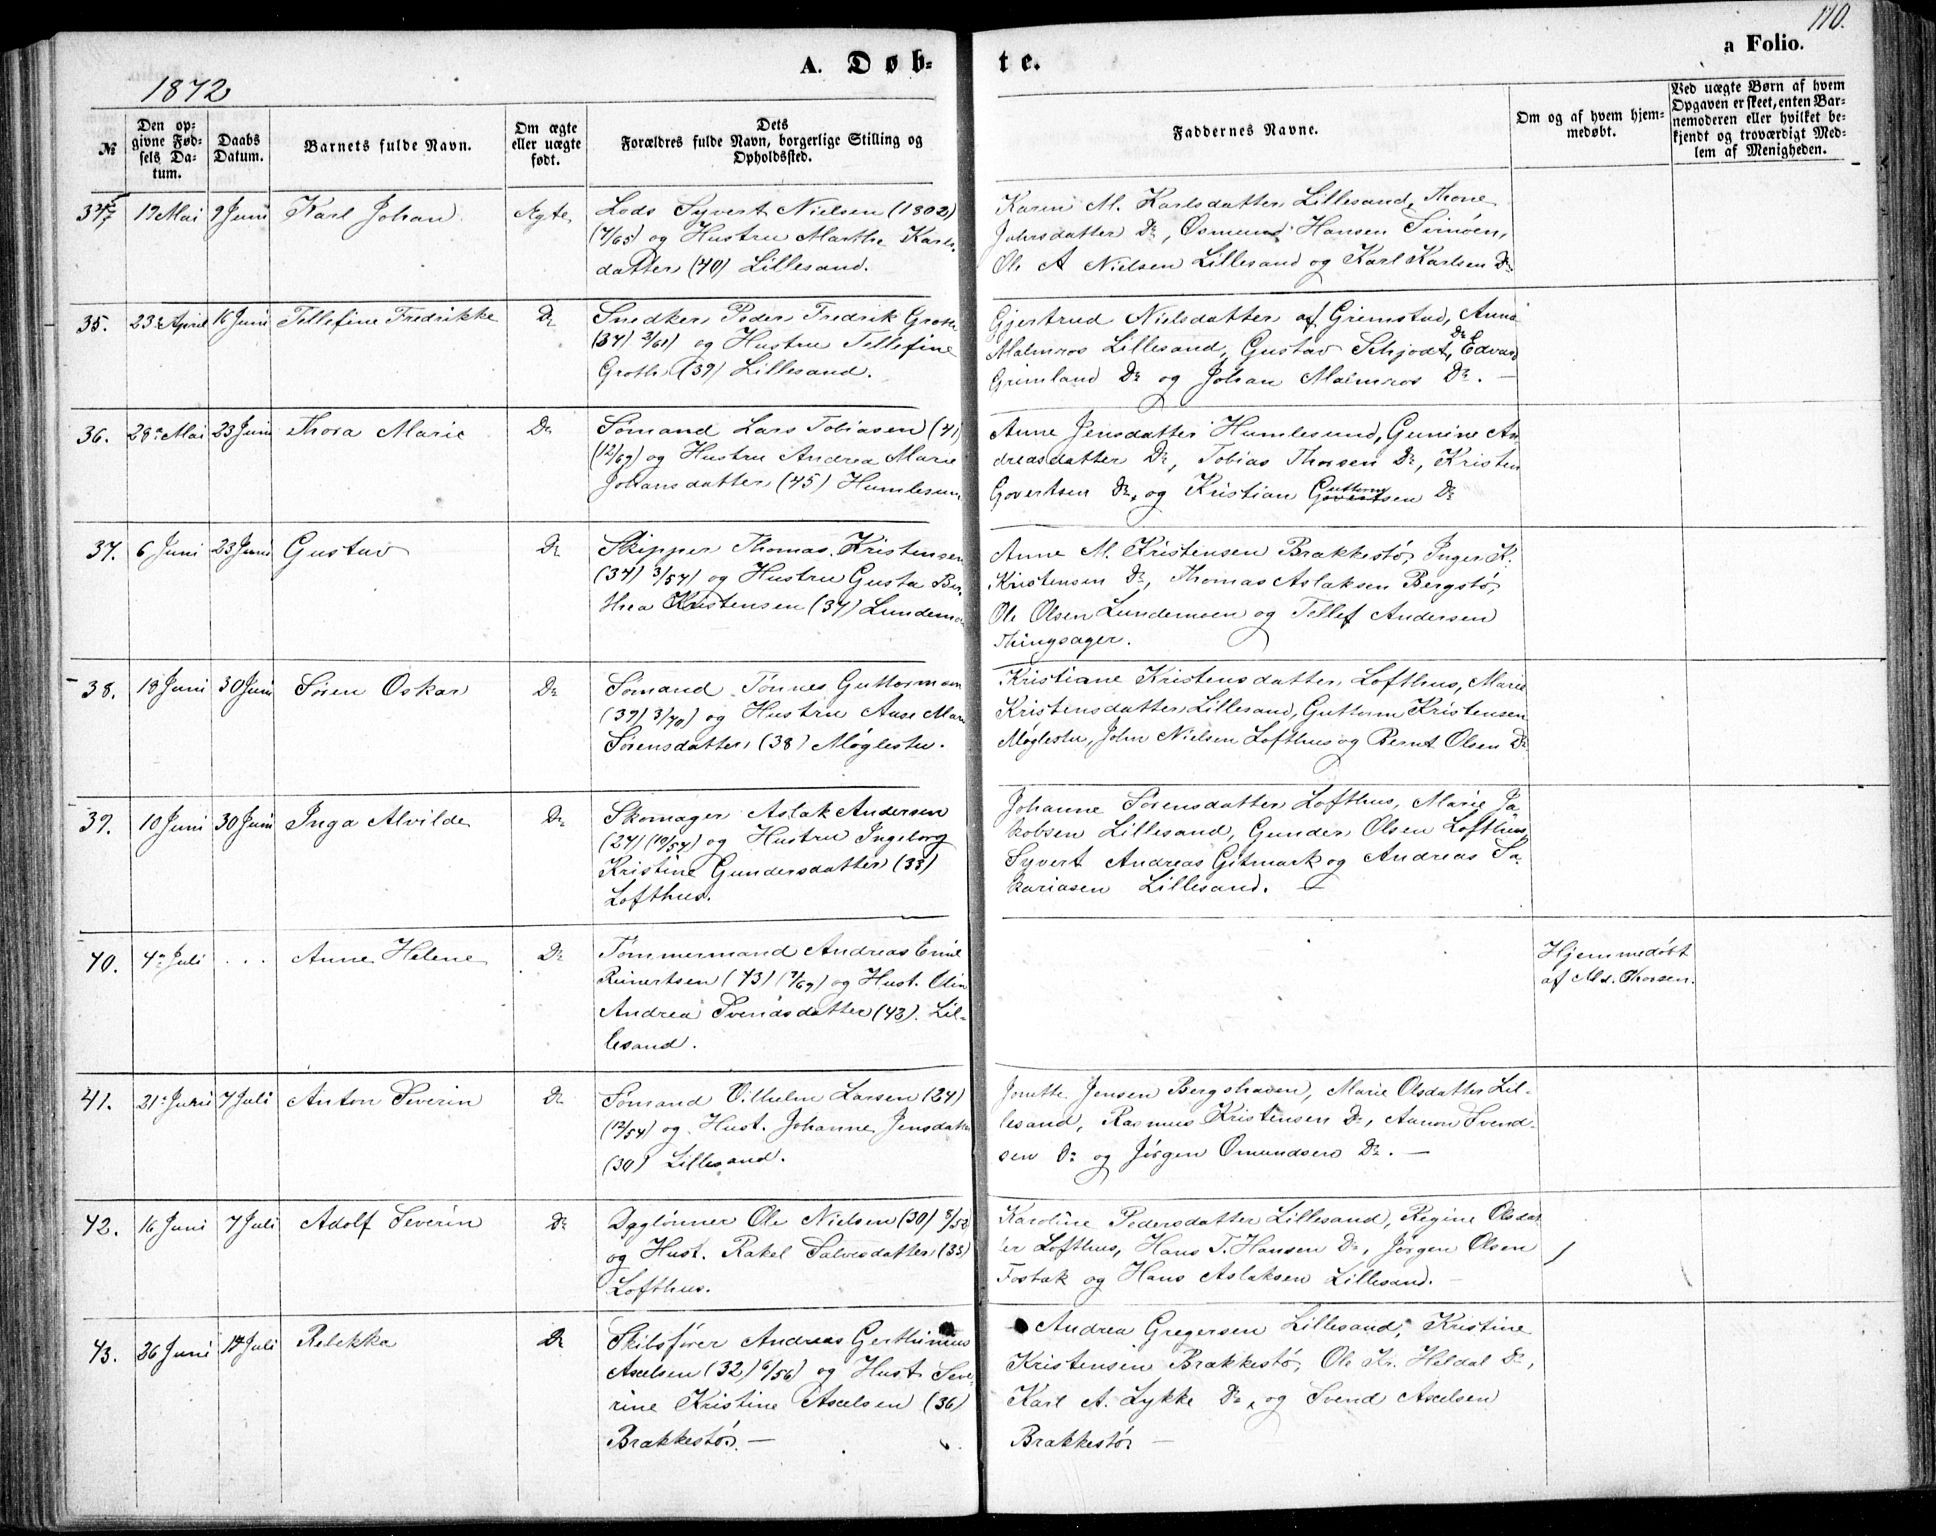 110.
A. Døb-
te.
a Folio.
1872
№
Den op-
givne Fød-
sels Da-
tum.
Daabs
Datum.
Barnets fulde Navn.
Om ægte
eller uægte
født.
Dets
Forældres fulde Navn, borgerlige Stilling og
Opholdssted.
Faddernes Navne.
Om og af hvem hjem-
medøbt.
Ved uægte Børn af hvem
Opgaven er skeet, enten Bar-
nemoderen eller hvilket be-
kjendt og troværdigt Med-
lem af Menigheden.
34. 19 Mai 9 Juni Karl Johan Ægte
Lods Syvert Nielsen (1802)
(7/65) og Hustru Marthe Karls-
datter (40) Lillesand.
Karen M. Karlsdatter Lillesand, Thone
Johrsdatter Do, Osmund Hansen
Ole A Nielsen Lillesand og Karl Karlsen Do
35. 23 April 16 Juni Tellefine Fredrikke Do
Snedker Peder Fredrik Groth
(34) 3/61) og Hustru Tellefine
Groth (39) Lillesand.
Gjertrud Nielsdatter af Grimstad, Anna
Malmros Lillesand, Gustav Schjødt Do, Edvard
Grimland Do og Johan Malmros Do. —
36. 28 Mai 23 Juni Thora Marie Do
Sømand Lars Tobiasen (41)
(12/69) og Hustru Andrea Marie
Johansdatter (45) Humlesund
Anne Jensdatter Humlesund, Gunine An
dreasdatter Do, Tobias Thorsen Do, Kristen
Govertsen Do, og Kristian Guttormsen Do
37. 6 Juni 23 Juni Gustav Do
Skipper Thomas Kristensen
(34) 3/54) og Hustru Gusta Ber
thea Kristensen (37) Lundemo
Anne M. Kristensen Brækkestø, Inger K.
Kristensen Do, Thomas Aslaksen Bergstø,
Ole Olsen Lundemoen og Tellef Andersen
Thingsager.
38. 18 Juni 30 Juni Søren Oskar Do
Sømand Tønnes Guttormsen
(39) 3/70) og Hustru Aase Marie
Sørensdatter (38) Møglestu.
Kristiane Kristensdatter Lofthus, Marie
Kristensdatter Lillesand, Guttorm Kristensen
Møglestu, John Nielsen Lofthus og Bernt Olsen Do
39. 10 Juni 30 Juni Inga Alvilde Do
Skomager Aslak Andersen
(24) (10/54) og Hustru Ingeborg
Kristine Gundersdatter (33)
Lofthus.
Johanne Sørensdatter Lofthus, Marie Ja
kobsen Lillesand, Gunder Olsen Lofthus,
Syvert Andreas Gitmark og Andreas Sa
kariasen Lillesand. —
40. 4 Juli . . . Anne Helene Do
Tømmermand Andreas Emil
Reinertsen (43) (7/69) og Hust. Olin
Andrea Svendsdatter (43). Lil-
lesand.
Hjemmedøbt
af Md. Thorsen.
41. 21 Juni 7 Juli Anton Severin Do
Sømand Vilhelm Larsen (24)
(12/54) og Hust. Johanne Jensdatter
(30) Lillesand.
Jonette Jensen Bergshaven, Marie Olsdatter Lil-
lesand, Rasmus Kristensen Do, Aanon Svend-
sen Do og Jørgen Omundsen Do. —
42. 16 Juni 7 Juli Adolf Severin Do
Daglønner Ole Nielsen (30) 8/52
og Hust. Rakel Salvesdatter (33)
Lofthus.
Karoline Pedersdatter Lillesand, Regine Olsdat
er Lofthus, Hans T. Hansen Do, Jørgen Olsen
Fosbæk og Hans Aslaksen Lillesand. —
43. 26 Juni 14 Juli Rebekka Do
Skibsfører Andreas Gerthinius
Axelsen (32) 6/56) og Hust. Seve-
rine Kristine Axelsen (36)
Brækkestø. —
Andrea Gregersen Lillesand, Kristine
Kristensen Brækkestø, Ole Kr. Heldal Do,
Karl A. Lykke Do, og Svend Axelsen
Brækkestø —